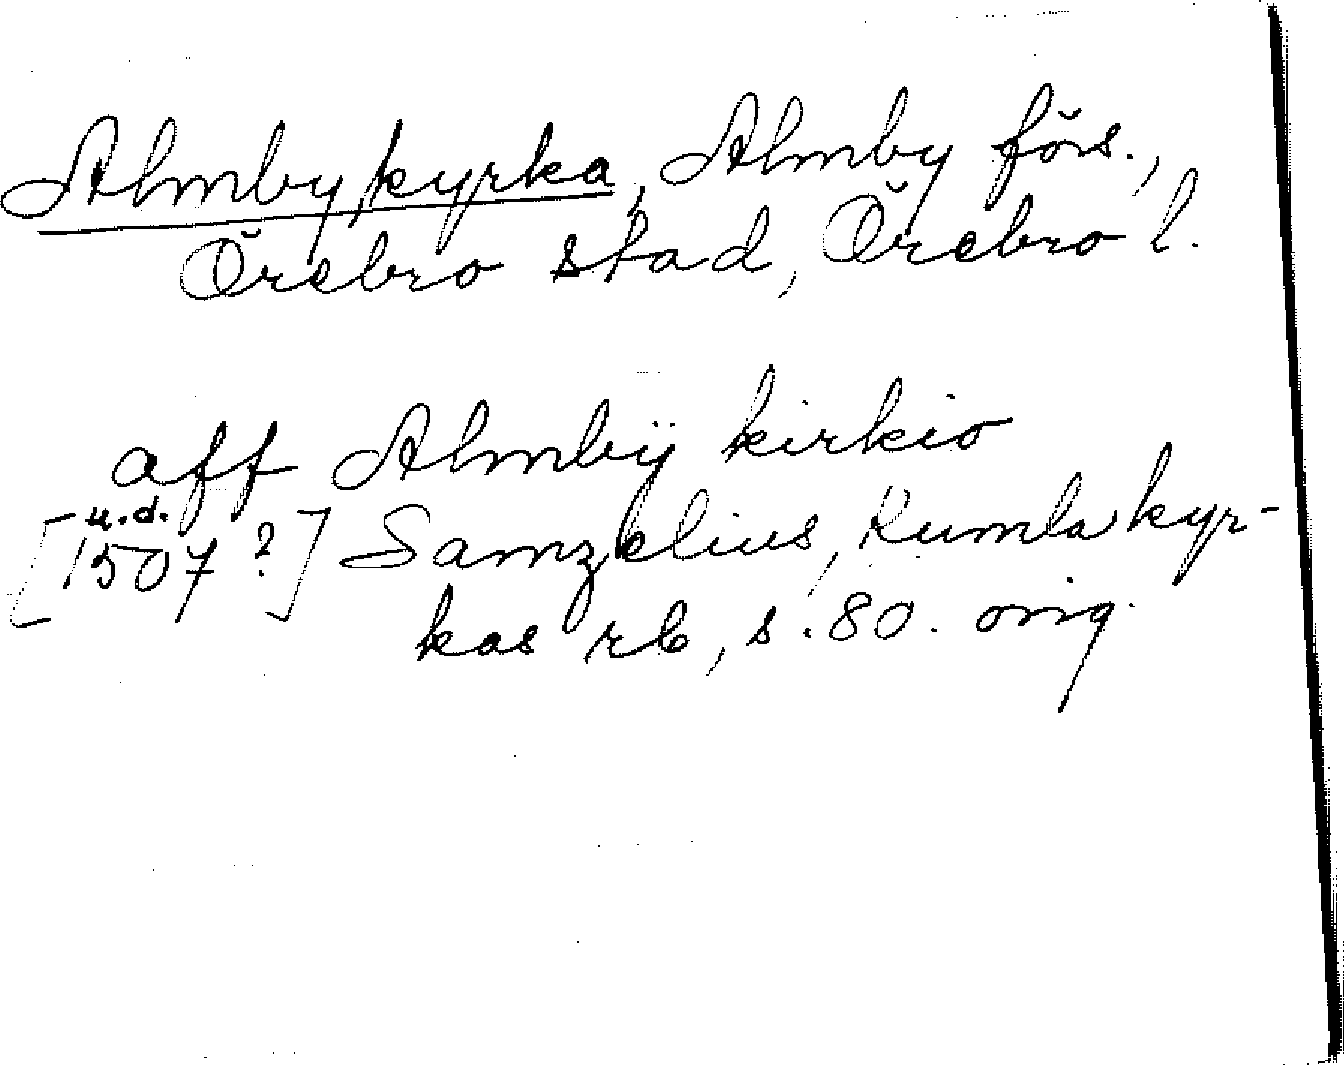 Almby kyrka, Almby förs.,
Örebro stad, Örebro l.
aff Almbÿ kirkio
u.d.
[1507 ?] Samzelius, Kumla kyr-
kas rb, s. 80. orig.